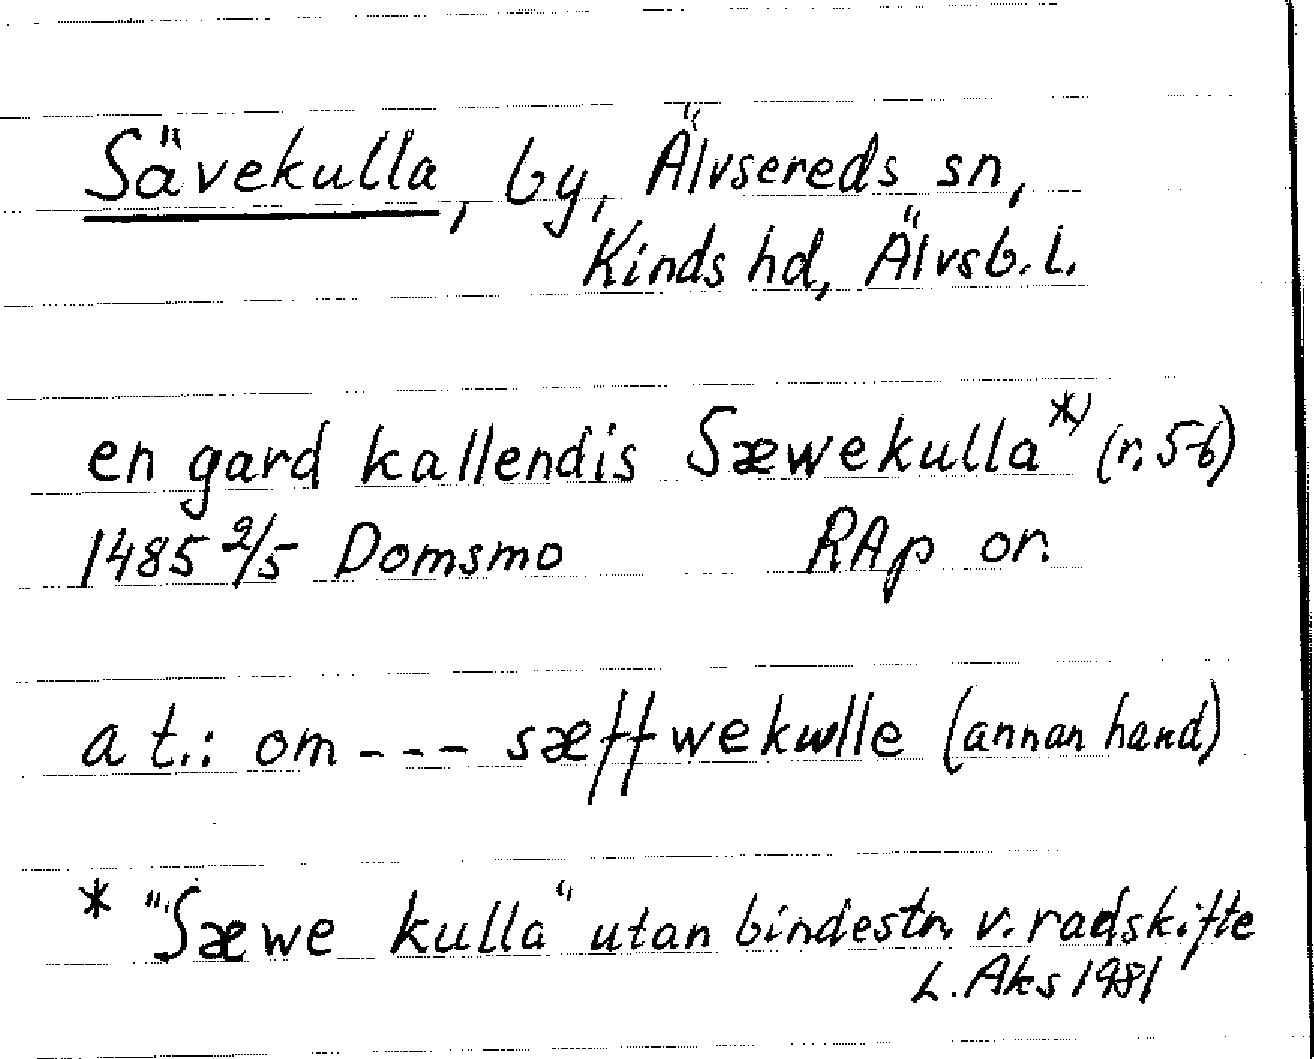 Sävekulla, by, Älvsereds sn,
Kinds hd, Älvsb. l.
en gard kallendis Sæwekulla*) (r. 5-6)
1485 2/5 Domsmo RAp or.
a t.: om - - - sæffwekwlle (annan hand)
* "Sæwe kulla" utan bindestr. v. radskifte
L. Aks 1981